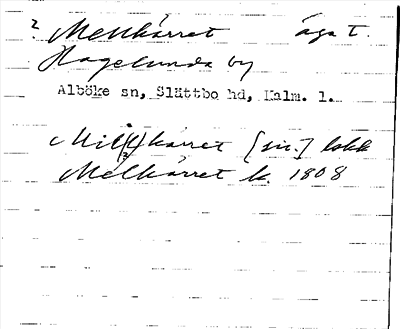 ? Mellkärret äga t.
Hagelunda by
Alböke sn, Slättbo hd, Kalm. l.
Mil(l)kärret [sic.] lskk
?
Melkärret k. 1808